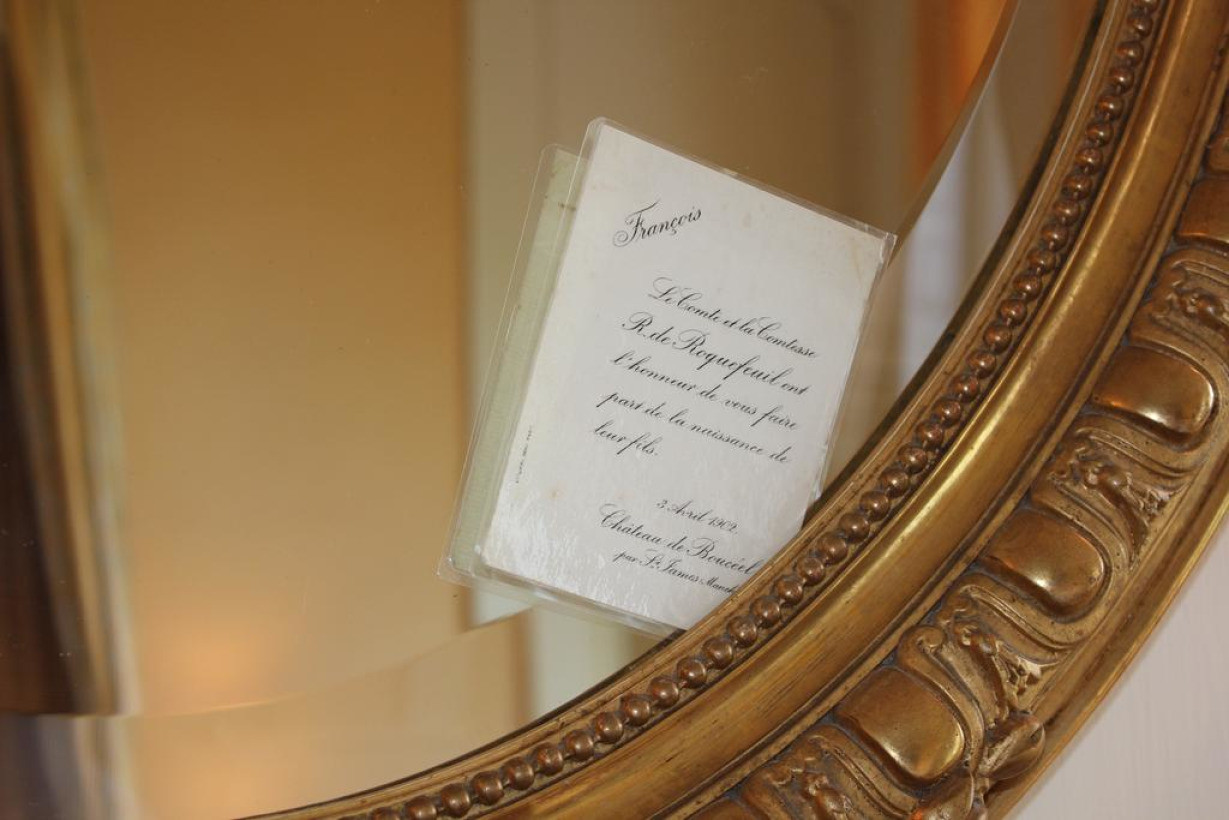 François
Le Comte et la Comtesse
R. de Roquefeuil ont
l'honneur de vous faire
part de la naissance de
leur fils.
3 Avril 1902.
Château de Boucéel
par St. James